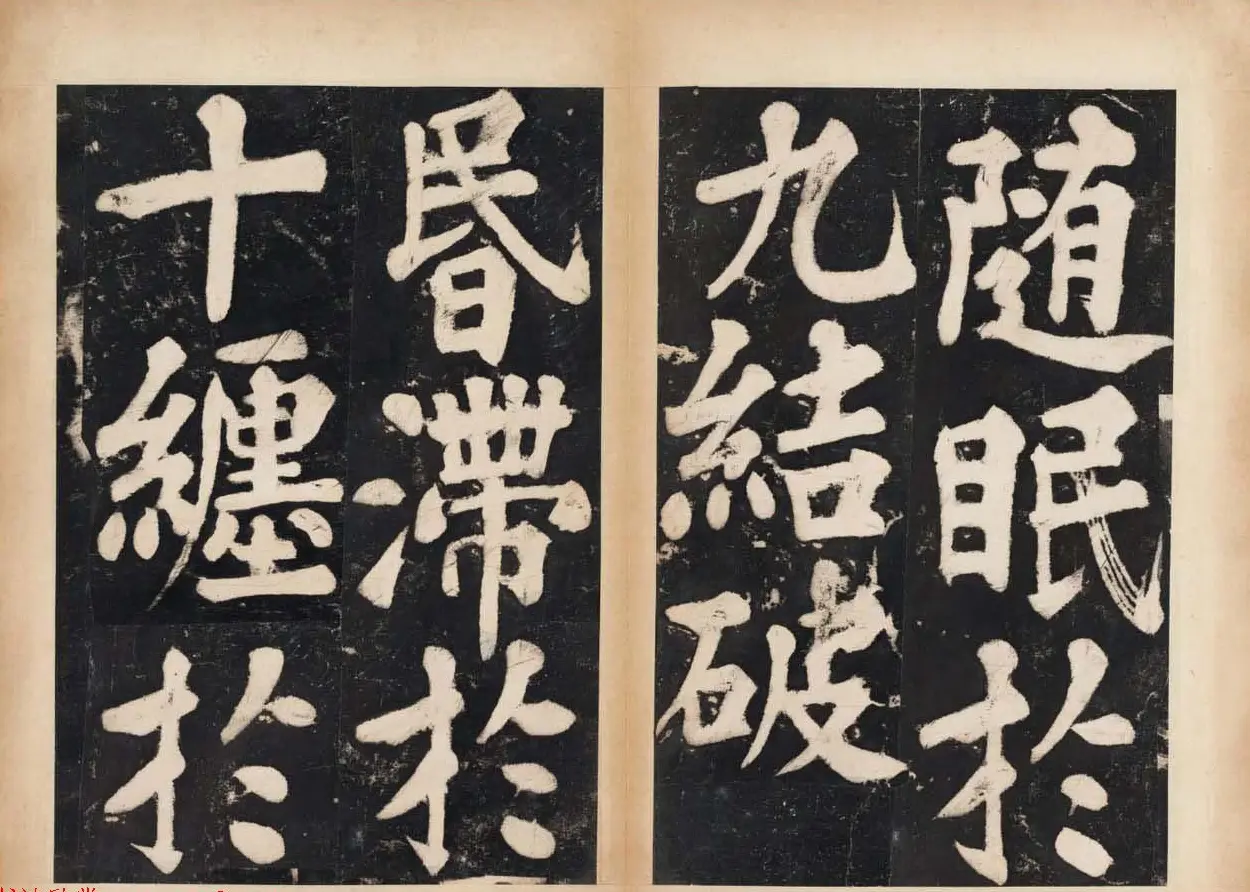 随眠於
九結破
昬滯於
十纏於